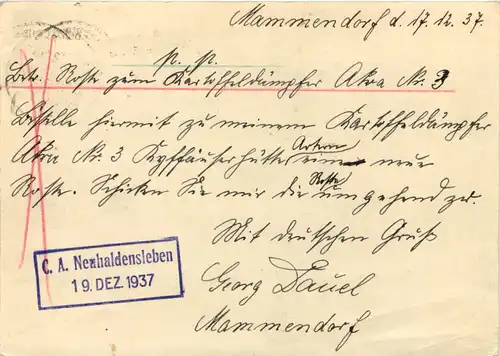 Mammendorf d. 17.12.37.
p. p.
Betr. Roste zum Kartoffeldämpfer Akra Nr. 3
Bestelle hiermit zu meinem Kartoffeldämpfer
Akra Nr. 3 Kyffhäuserhütte Artern eine neue
Roste. Schicken Sie mir die Roste umgehend zu.
Mit deutschen Gruß
Georg Dauel
Mammendorf
C. A. Neuhaldensleben
19. DEZ. 1937